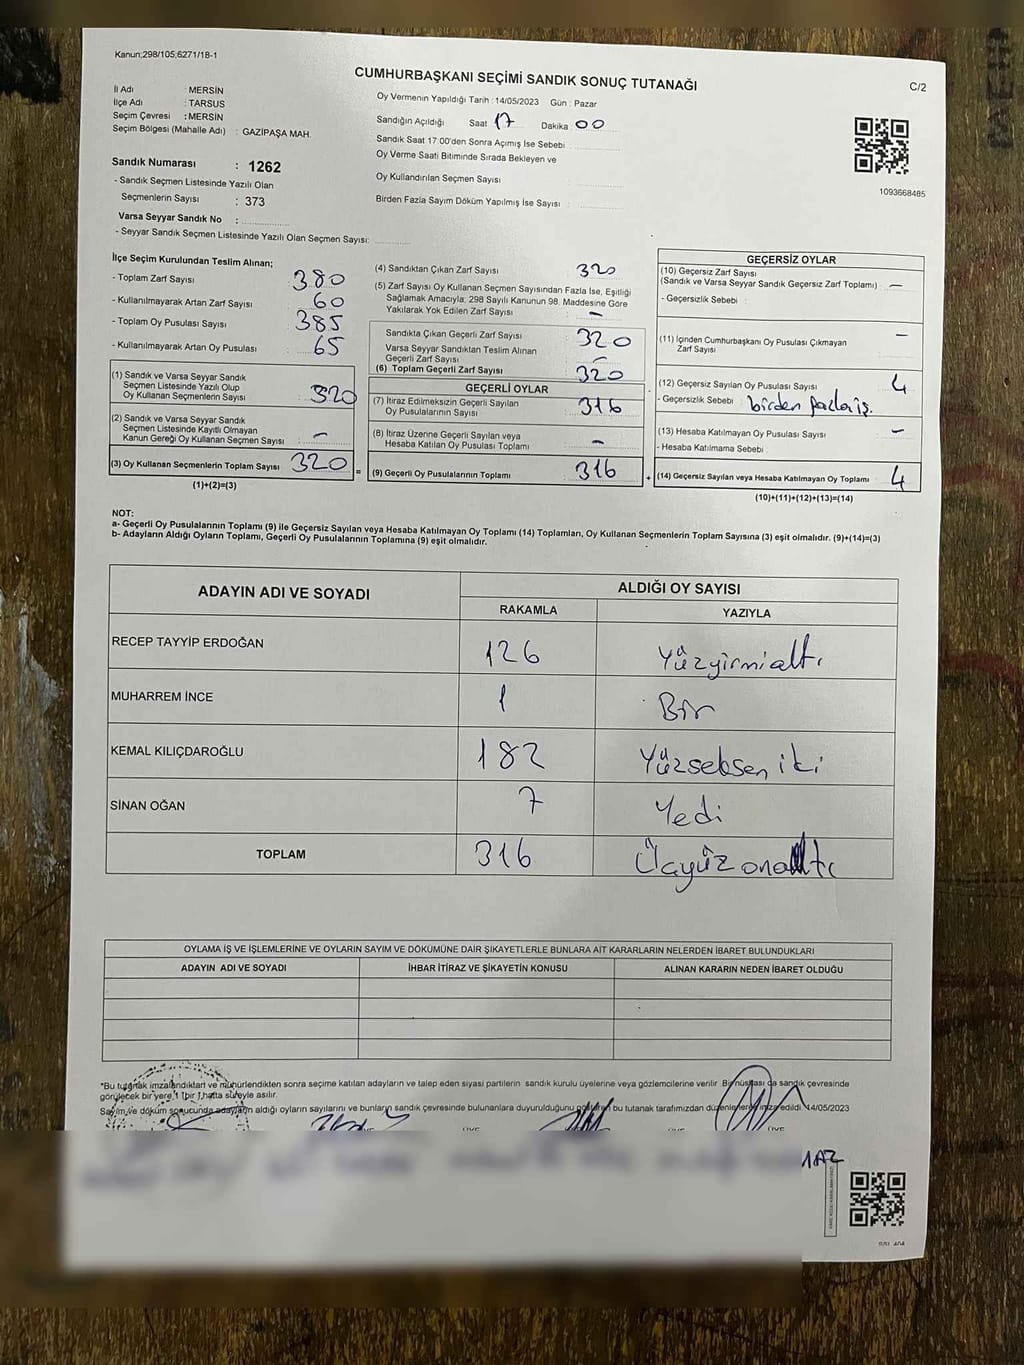 Kanun;298/105;6271/18-1
CUMHURBAŞKANI SEÇİMİ SANDIK SONUÇ TUTANAĞI
C/2
İl Adı : MERSİN
İlçe Adı : TARSUS
Seçim Çevresi : MERSİN
Seçim Bölgesi (Mahalle Adı) : GAZİPAŞA MAH.
Sandık Numarası : 1262
- Sandık Seçmen Listesinde Yazılı Olan
Seçmenlerin Sayısı : 373
Varsa Seyyar Sandık No :
- Seyyar Sandık Seçmen Listesinde Yazılı Olan Seçmen Sayısı:
Oy Vermenin Yapıldığı Tarih : 14/05/2023 Gün : Pazar
Sandığın Açıldığı Saat 17 Dakika 00
Sandık Saat 17:00'den Sonra Açımış İse Sebebi
Oy Verme Saati Bitiminde Sırada Bekleyen ve
Oy Kullandırılan Seçmen Sayısı :
Birden Fazla Sayım Döküm Yapılmış İse Sayısı :
1093668485
İlçe Seçim Kurulundan Teslim Alınan;
- Toplam Zarf Sayısı 380
- Kullanılmayarak Artan Zarf Sayısı 60
- Toplam Oy Pusulası Sayısı 385
- Kullanılmayarak Artan Oy Pusulası 65
(1) Sandık ve Varsa Seyyar Sandık
Seçmen Listesinde Yazılı Olup
Oy Kullanan Seçmenlerin Sayısı : 320
(2) Sandık ve Varsa Seyyar Sandık
Seçmen Listesinde Kayıtlı Olmayan
Kanun Gereği Oy Kullanan Seçmen Sayısı : -
(3) Oy Kullanan Seçmenlerin Toplam Sayısı 320
(1)+(2)=(3)
(4) Sandıktan Çıkan Zarf Sayısı 320
(5) Zarf Sayısı Oy Kullanan Seçmen Sayısından Fazla İse, Eşitliği
Sağlamak Amacıyla; 298 Sayılı Kanunun 98. Maddesine Göre
Yakılarak Yok Edilen Zarf Sayısı : -
Sandıkta Çıkan Geçerli Zarf Sayısı 320
Varsa Seyyar Sandıktan Teslim Alınan
Geçerli Zarf Sayısı -
(6) Toplam Geçerli Zarf Sayısı 320
GEÇERLİ OYLAR
(7) İtiraz Edilmeksizin Geçerli Sayılan
Oy Pusulalarının Sayısı : 316
(8) İtiraz Üzerine Geçerli Sayılan veya
Hesaba Katılan Oy Pusulası Toplamı -
= (9) Geçerli Oy Pusulalarının Toplamı 316
GEÇERSİZ OYLAR
(10) Geçersiz Zarf Sayısı
(Sandık ve Varsa Seyyar Sandık Geçersiz Zarf Toplamı) : -
- Geçersizlik Sebebi :
(11) İçinden Cumhurbaşkanı Oy Pusulası Çıkmayan
Zarf Sayısı -
(12) Geçersiz Sayılan Oy Pusulası Sayısı 4
- Geçersizlik Sebebi : birden fazla iş.
(13) Hesaba Katılmayan Oy Pusulası Sayısı -
- Hesaba Katılmama Sebebi :
+ (14) Geçersiz Sayılan veya Hesaba Katılmayan Oy Toplamı 4
(10)+(11)+(12)+(13)=(14)
NOT:
a- Geçerli Oy Pusulalarının Toplamı (9) ile Geçersiz Sayılan veya Hesaba Katılmayan Oy Toplamı (14) Toplamları, Oy Kullanan Seçmenlerin Toplam Sayısına (3) eşit olmalıdır. (9)+(14)=(3)
b- Adayların Aldığı Oyların Toplamı, Geçerli Oy Pusulalarının Toplamına (9) eşit olmalıdır.
ADAYIN ADI VE SOYADI ALDIĞI OY SAYISI
RAKAMLA YAZIYLA
RECEP TAYYİP ERDOĞAN 126 Yüzyirmialtı
MUHARREM İNCE 1 Bir
KEMAL KILIÇDAROĞLU 182 Yüzseksen iki
SİNAN OĞAN 7 Yedi
TOPLAM 316 Üçyüz onaltı
OYLAMA İŞ VE İŞLEMLERİNE VE OYLARIN SAYIM VE DÖKÜMÜNE DAİR ŞİKAYETLERLE BUNLARA AİT KARARLARIN NELERDEN İBARET BULUNDUKLARI
ADAYIN ADI VE SOYADI İHBAR İTİRAZ VE ŞİKAYETİN KONUSU ALINAN KARARIN NEDEN İBARET OLDUĞU
*Bu tutanak imzalandıktan ve mühürlendikten sonra seçime katılan adayların ve talep eden siyasi partilerin sandık kurulu üyelerine veya gözlemcilerine verilir. Bir nüshası da sandık çevresinde
görülecek bir yere 1 (bir) hafta süreyle asılır.
Sayım ve döküm sonucunda adayların aldığı oyların sayılarını ve bunların sandık çevresinde bulunanlara duyurulduğunu gösteren bu tutanak tarafımızdan düzenlenerek imza edildi. 14/05/2023
ÜYE ÜYE ÜYE